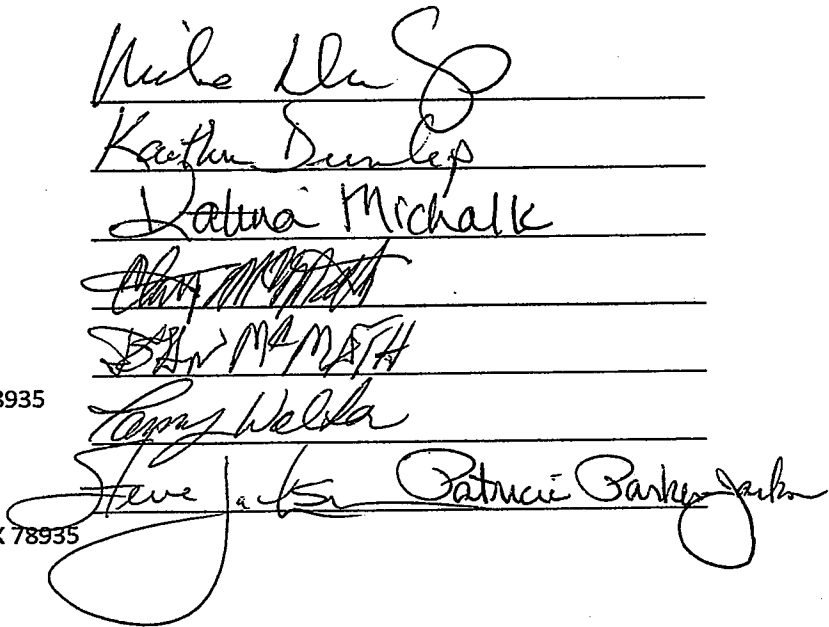 Mike
Kathy Dunlap
Katina Michalk
McMath
Dan McMATH
8935
Larry
Steve Jackson Patricia Parker-Jackson
X 78935